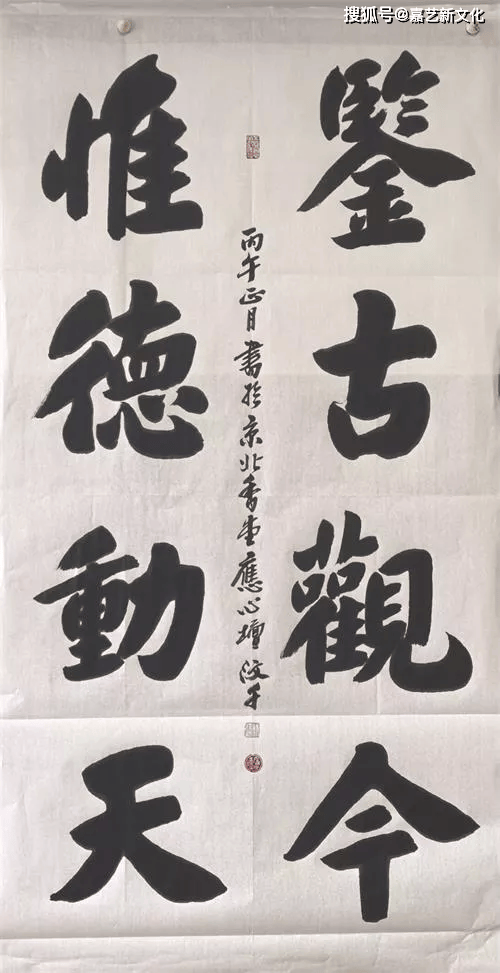 搜狐号@嘉艺新文化
鑒古觀今
惟德動天
丙午正月書於京北香堂應心壇汶千